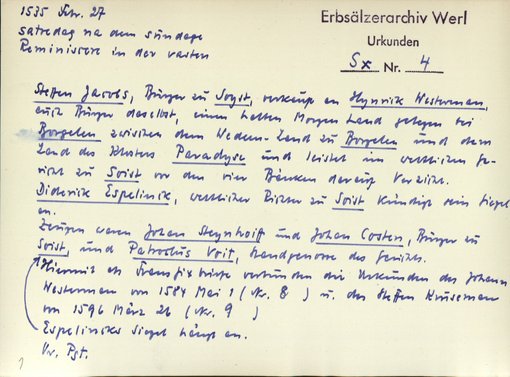 1535 Febr. 27
satredag na dem sündage
Reminiscere in der vasten
Erbsälzerarchiv Werl
Urkunden
Sx Nr. 4
Steffen Jacobs, Bürger zu Soyst, verkauft an Hynrik Westerman,
auch Bürger daselbst, einen halben Morgen Land gelegen bei
Borgelen zwischen dem Wedem-Land zu Borgelen und dem
Land des Klosters Paradyse und leistet im weltlichen Ge-
richt zu Soist vor den vier Bänken darauf Verzicht.
Diderik Espelinck, weltlicher Richter zu Soist kündigt sein Siegel
an.
Zeugen waren Johan Steynhoiff und Johan Costen, Bürger zu
Soist, und Patroclus Voit, handgenore des Gerichts.
Hiermit als Transfixbriefe verbunden die Urkunden des Johann
Westerman von 1584 Mai 1 (Nr. 8) u. des Steffen Kruseman
von 1596 März 26 (Nr. 9)
Espelincks Siegel hängt an.
Or. Pgt.
1